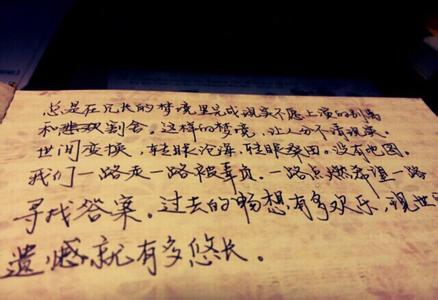 总是在冗长的梦境里完成现实不愿上演的别离
和悲欢割舍。这样的梦境，让人分不清现实。
世间变换，转眼沧海，转眼桑田。没有地图。
我们一路走一路被辜负。一路点燃希望一路
寻找答案。过去的畅想有多欢乐，现世
遗憾就有多悠长。